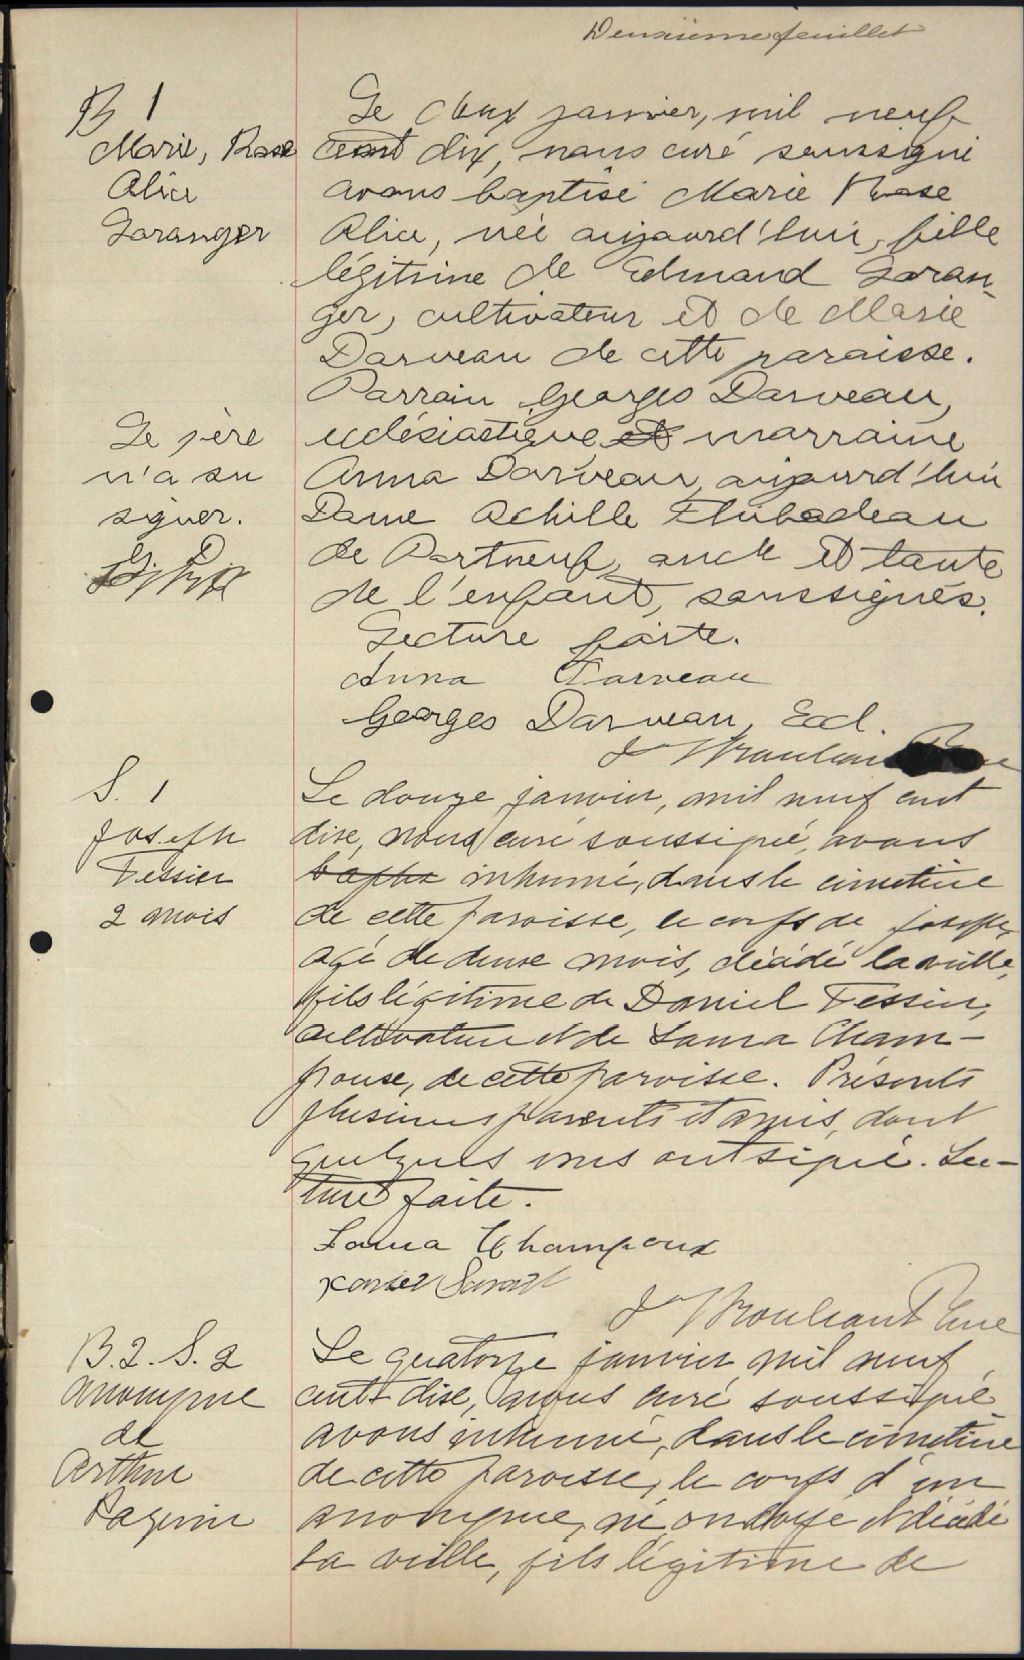 Deuxième feuillet
B 1
Marie, Rose
Alice
Loranger
Le deux janvier, mil neuf
cent dix, nous curé soussigné
avons baptisé Marie Rose
Alice, née aujourd'hui, fille
légitime de Edmond Loran-
ger, cultivateur et de Marie
Darveau de cette paroisse.
Parrain Georges Darveau,
ecclésiastique et marraine
Anna Darveau, aujourd'hui
Dame Achille Thibodeau
de Portneuf, oncle et tante
de l'enfant, soussignés.
Lecture faite.
Le père
n'a su
signer.
G D
Anna Darveau
Georges Darveau, Eccl.
S. 1
Joseph
Tessier
2 mois
Le douze janvier, mil neuf cent
dix, nous curé soussigné, avons
bapti inhumé, dans le cimetière
de cette paroisse, le corps de Joseph,
agé de deux mois, décédé la veille,
fils légitime de Daniel Tessier,
cultivateur et de Laura Cham-
poux, de cette paroisse. Présents
plusieurs parents et amis, dont
quelques uns ont signé. Lec-
ture faite.
Laura Champoux
B. 2. S. 2
Anonyme
de
Arthur
Le quatorze janvier mil neuf
cent dix, nous curé soussigné
avons inhumé, dans le cimetière
de cette paroisse, le corps d'un
anonyme, né, ondoyé et décédé
la veille, fils légitime de